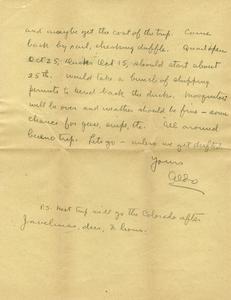 and maybe get the cost of the trip. Come
back by rail, checking duffle. Quail open
Oct 25, ducks Oct 15, should start about
25th. Would take a bunch of shipping
permits to send back the ducks. Mosquitoes
will be over and weather should be fine – some
chance for geese, snipe, etc. All around
bueno trip. Lets go – unless we get drafted
Yours
Aldo
P.S. Next trip will go the Colorado after
Javelinas, deer, & lions.